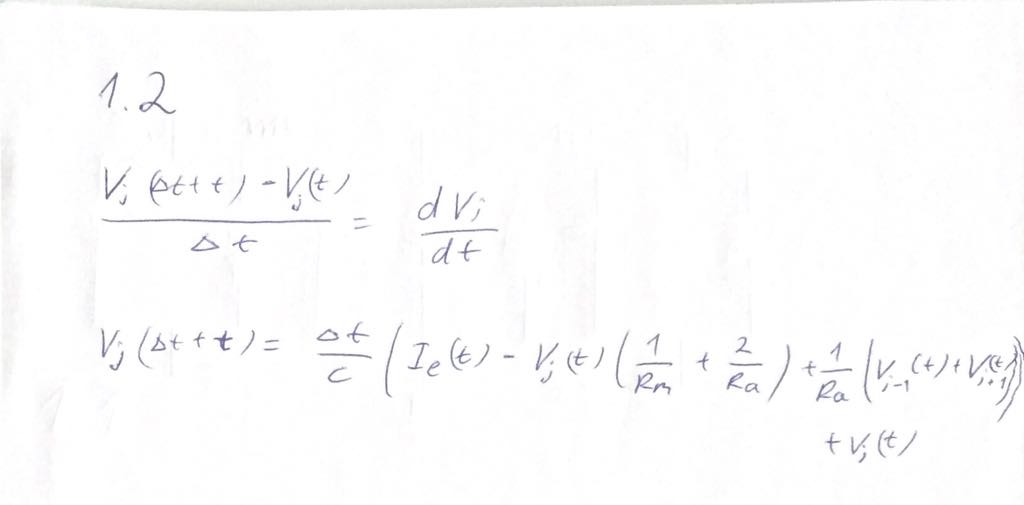 1.2
V_j (Δt + t) - V_j(t) / Δt = dV_j / dt
V_j (Δt + t) = Δt/C ( I_e(t) - V_j(t) ( 1/R_m + 2/R_a ) + 1/R_a ( V_{j-1}(t) + V_{j+1}(t) ) )
+ V_j(t)